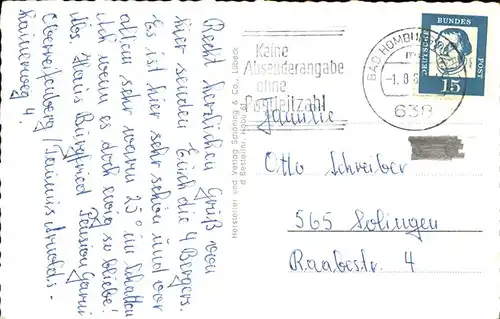 Recht herzlichen Gruß von
hier senden Euch die 4 Bergers.
Es ist hier sehr schön und vor
allem sehr warm 25° im Schatten
Ach wenn es doch ewig so bliebe!
Haus Burgfried Pension Garni
Oberreifenberg / Taunus
Hainerweg 4.
Hersteller und Verlag Schöning & Co., Lübeck
Keine
Absenderangabe
ohne
Postleitzahl
BAD HOMBURG
-1.8
638
BUNDES
POST
15
Familie
Otto Schreiber
565 Solingen
Raabestr. 4